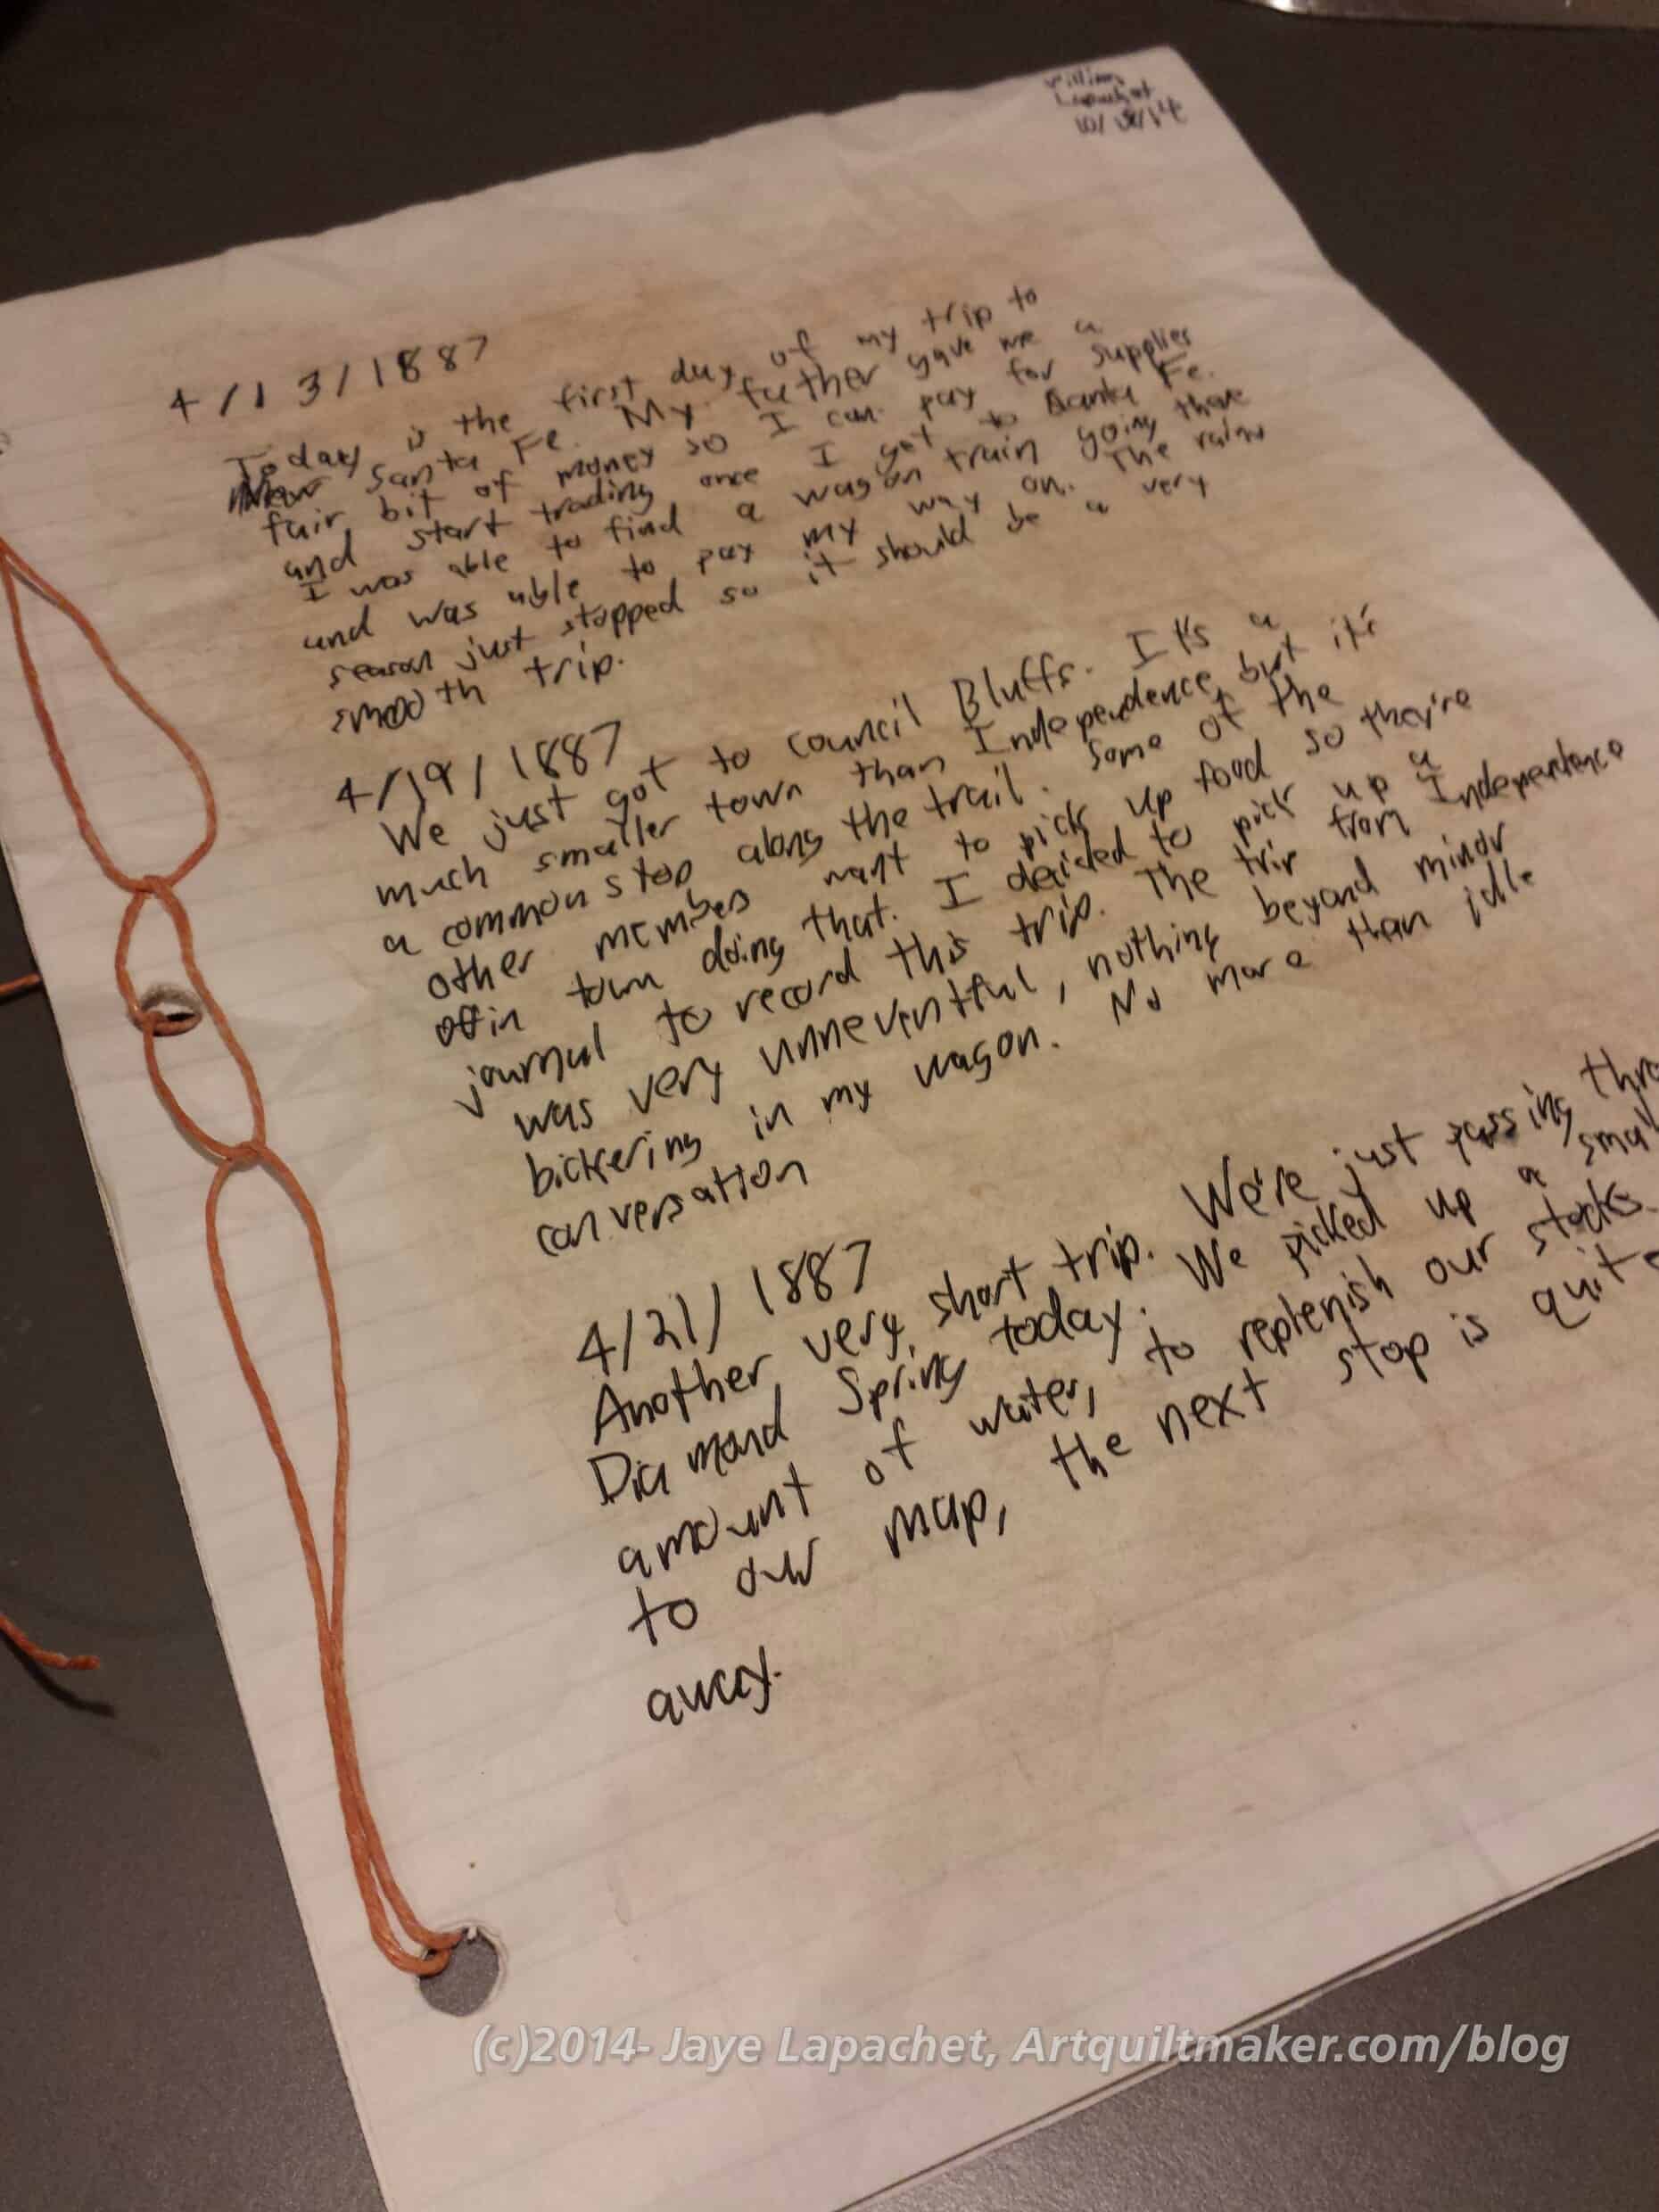 William
Lapachet
10/28/14
4/13/1887
Today is the first day of my trip to
Santa Fe. My father gave me a
fair bit of money so I can pay for supplies
and start trading once I get to Santa Fe.
I was able to find a wagon train going there
and was able to pay my way on. The rainy
season just stopped so it should be a very
smooth trip.
4/19/1887
We just got to council Bluffs. It's a
much smaller town than Independence, but it's
a common stop along the trail. Some of the
other members want to pick up food so they're
off in town doing that. I decided to pick up a
journal to record this trip. The trip from Independence
was very unneventful, nothing beyond minor
bickering in my wagon. No more than idle
conversation
4/21/1887
Another very short trip. We're just passing thro
Diamond Spring today. We picked up a smal
amount of water, to replenish our stocks.
to our map, the next stop is quite
away.
(c)2014- Jaye Lapachet, Artquiltmaker.com/blog